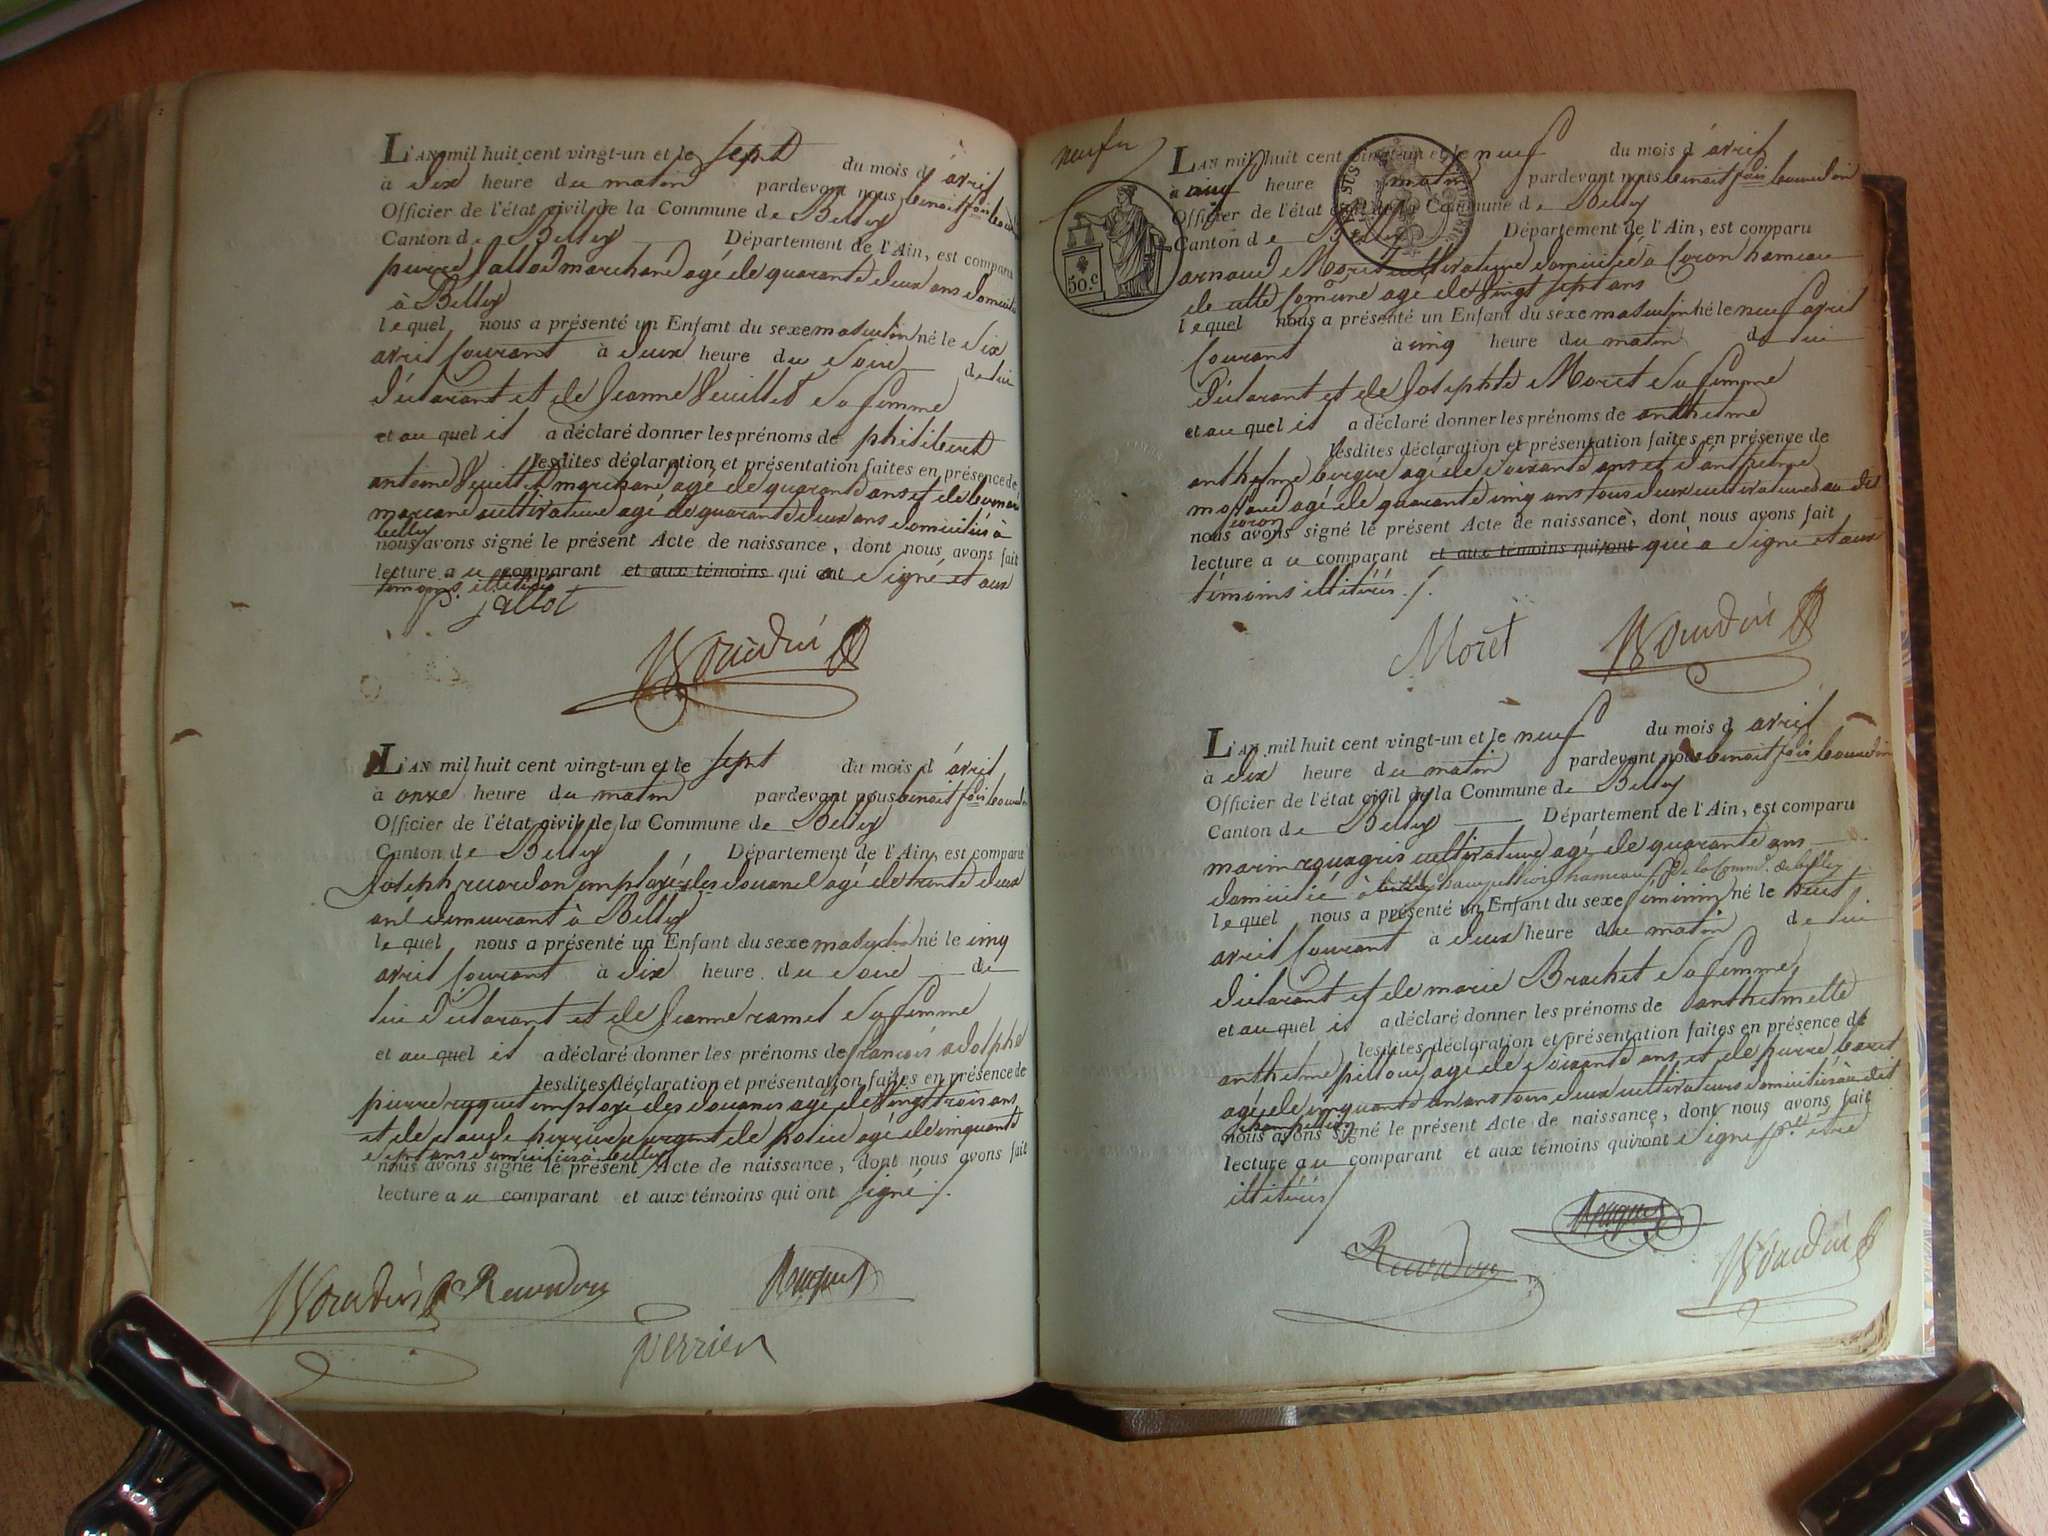 L'AN mil huit cent vingt-un et le sept du mois d'avril
à dix heure du matin pardevant nous benoit fois
Officier de l'état civil de la Commune de Belley
Canton de Belley Département de l'Ain, est comparu
pierre Jallot marchand agé de quarante deux ans domicilié
à Belley
lequel nous a présenté un Enfant du sexe masculin né le six
avril Courant à deux heure du soir de lui
déclarant et de Jeanne Peuillet sa femme
et au quel il a déclaré donner les prénoms de philibert
lesdites déclaration et présentation faites en présence de
antoine marchand agé de quarante ans et de
cultivateur agé de quarante deux ans domiciliés à
belley
nous avons signé le présent Acte de naissance, dont nous avons fait
lecture au comparant et aux témoins qui ont signé et aux
témoins illitérés
p. jallot
L'AN mil huit cent vingt-un et le sept du mois d'avril
à onze heure du matin pardevant nous benoit fois
Officier de l'état civil de la Commune de Belley
Canton de Belley Département de l'Ain, est comparu
Joseph employé des douanes agé de trente deux
ans demeurant à Belley
lequel nous a présenté un Enfant du sexe masculin né le cinq
avril Courant à dix heure du soir de
lui déclarant et de Jeanne ramel sa femme
et au quel il a déclaré donner les prénoms de françois adolphe
lesdites déclaration et présentation faites en présence de
pierre ruquet employé des douanes agé de vingt trois ans
et de claude perrier sergent de police agé de cinquante
sept ans domiciliés à belley
nous avons signé le présent Acte de naissance, dont nous avons fait
lecture au comparant et aux témoins qui ont signé /.
perrier
L'AN mil huit cent vingt-un et le neuf du mois d'avril
à heure matin pardevant nous benoit fois
Officier de l'état civil de la Commune de Belley
Canton de Belley Département de l'Ain, est comparu
arnaud Moret cultivateur domicilié à Coron hameau
de cette Comune agé de vingt sept ans
lequel nous a présenté un Enfant du sexe masculin né le neuf avril
Courant à cinq heure du matin de lui
déclarant et de Josephte Moret sa femme
et au quel il a déclaré donner les prénoms de anthelme
lesdites déclaration et présentation faites en présence de
anthelme agé de soixante ans et d'anthelme
agé de quarante cinq ans tous deux cultivateurs au dit
coron
nous avons signé le présent Acte de naissance, dont nous avons fait
lecture au comparant et aux témoins qui ont que a signé et aux
témoins illitérés /.
Moret
50.c
L'AN mil huit cent vingt-un et le neuf du mois d'avril
à dix heure du matin pardevant nous benoit fois
Officier de l'état civil de la Commune de Belley
Canton de Belley Département de l'Ain, est comparu
marin rouxgris cultivateur agé de quarante ans
domicilié à belley hameau de la Comm. de belley
lequel nous a présenté un Enfant du sexe féminin né le huit
avril Courant à deux heure du matin de lui
déclarant et de marie Brachet sa femme
et au quel il a déclaré donner les prénoms de anthelmette
lesdites déclaration et présentation faites en présence de
anthelme agé de soixante ans et de pierre
agé de cinquante un ans tous deux cultivateurs domiciliés au dit
nous avons signé le présent Acte de naissance, dont nous avons fait
lecture au comparant et aux témoins qui ont signé
illitérés /